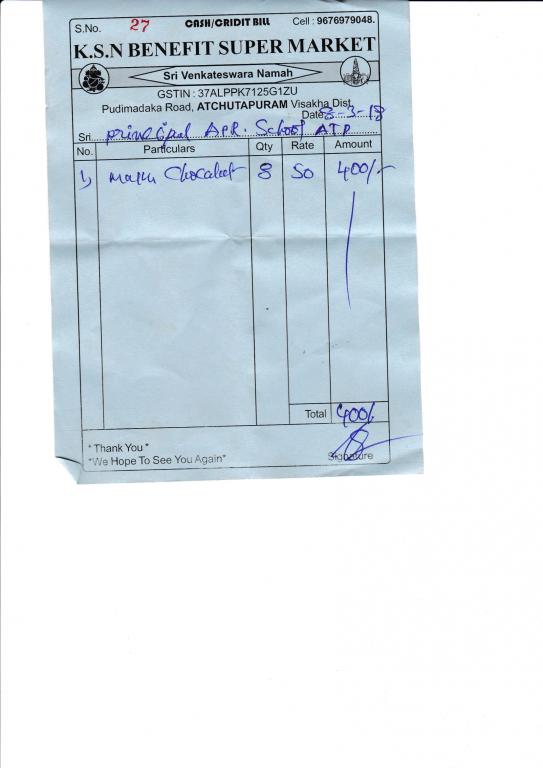 S.No. 27 CASH/CRIDIT BILL Cell : 9676979048.
K.S.N BENEFIT SUPER MARKET
Sri Venkateswara Namah
GSTIN : 37ALPPK7125G1ZU
Pudimadaka Road, ATCHUTAPURAM Visakha Dist.
Date -3-18
Sri principal A.P.R. School ATP
No. Particulars Qty Rate Amount
1) Chocalet 8 50 400/-
Total 400/-
* Thank You *
*We Hope To See You Again*
Signature